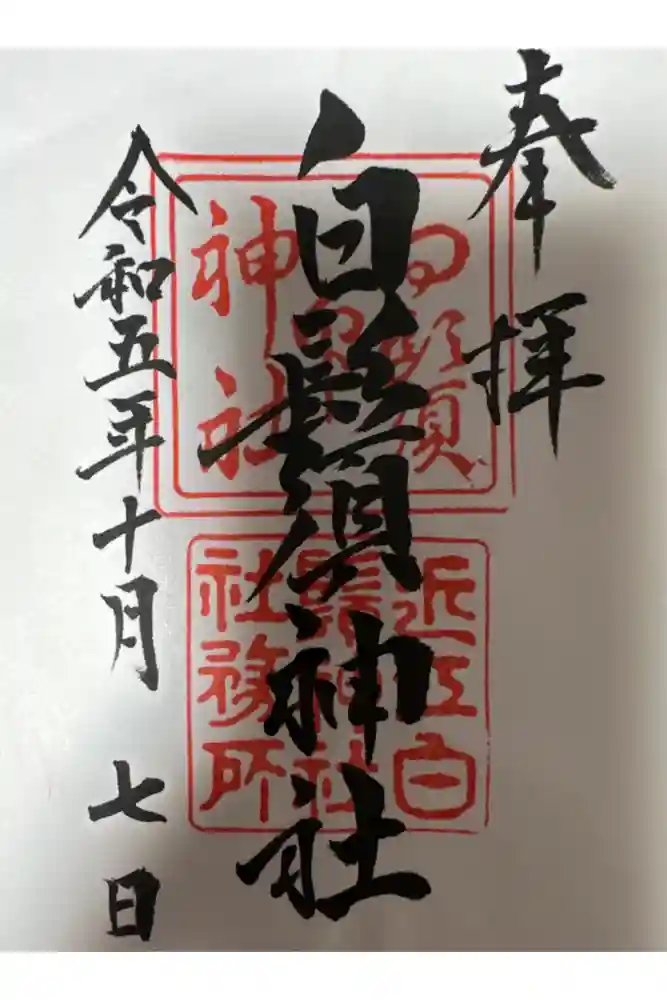 奉拝
白鬚神社
令和五年十月七日
近江白
鬚神社
社務所